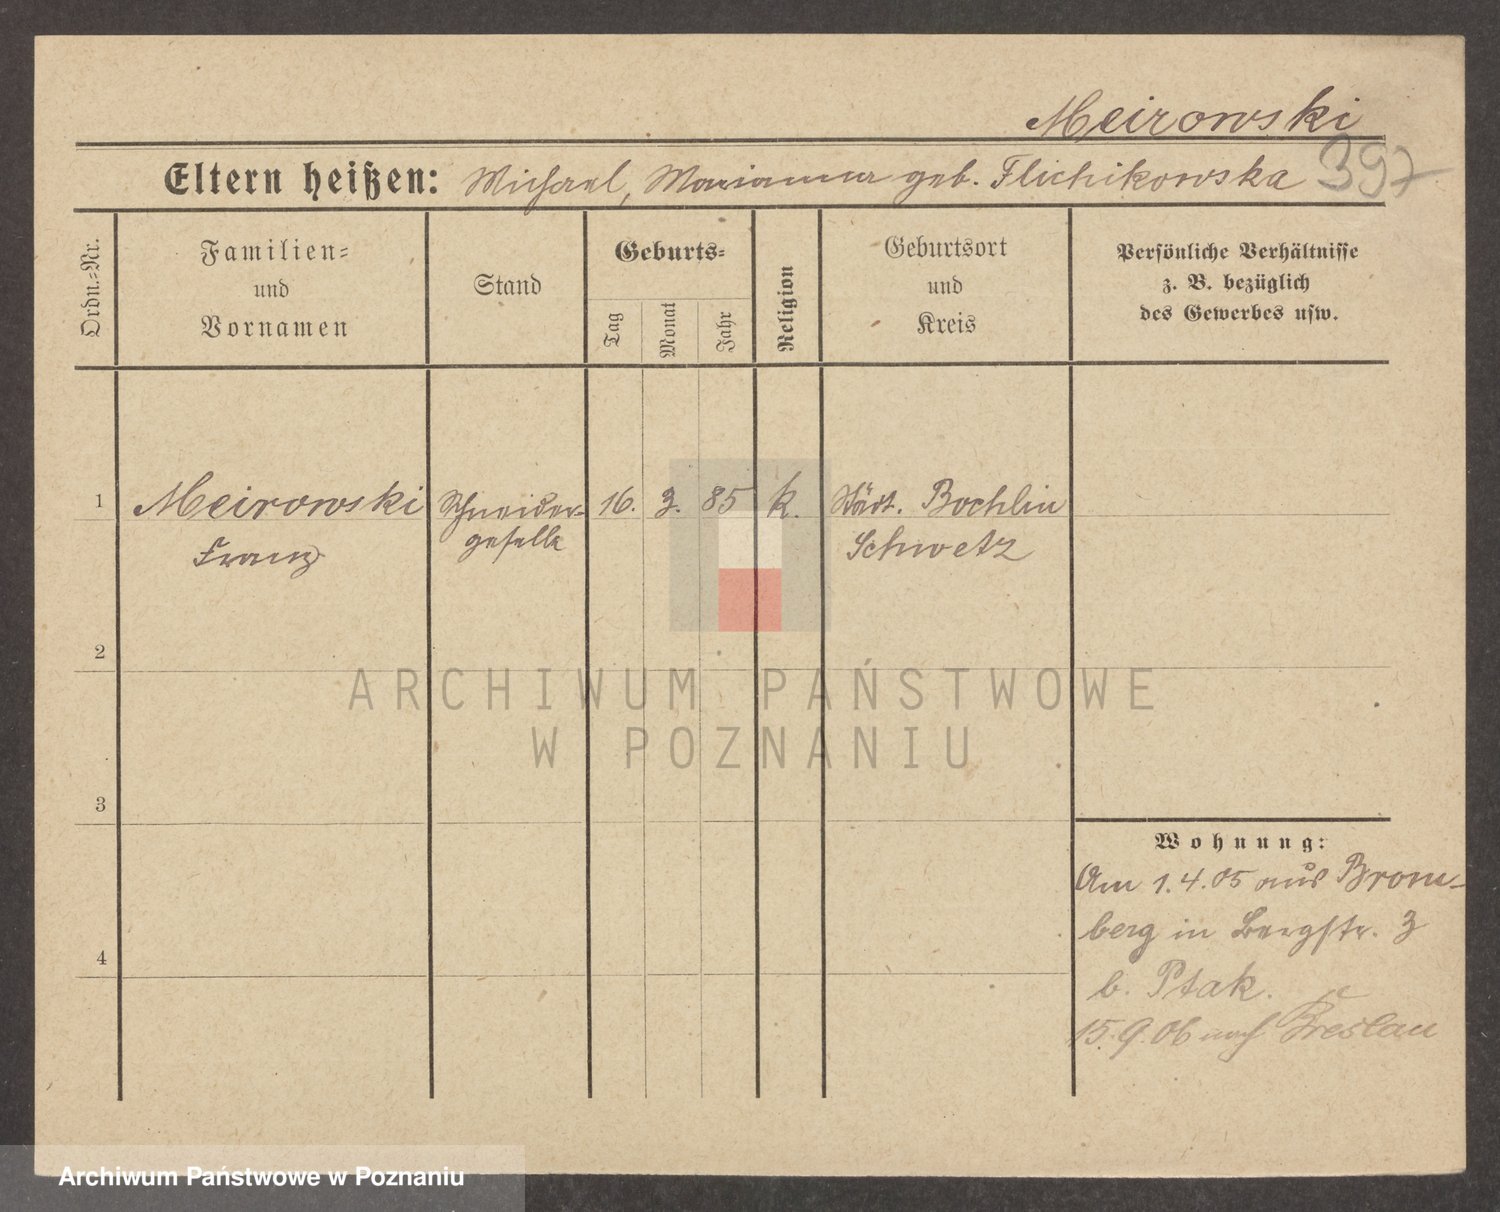 Meirowski
Eltern heißen: Michael, Marianna geb. Flichikowska 397
Ordn.=Nr.
Familien=
und
Vornamen
Stand
Geburts=
Tag
Monat
Jahr
Religion
Geburtsort
und
Kreis
Persönliche Verhältnisse
z. B. bezüglich
des Gewerbes usw.
1 Meirowski Schneider- 16. 3. 85 k. Städt. Bochlin
Franz geselle Schwetz
2
ARCHIWUM PAŃSTWOWE
W POZNANIU
3
Wohnung:
Am 1.4.05 aus Brom-
berg in Bergstr. 3
4
b. Ptak.
15.9.06 nach Breslau
Archiwum Państwowe w Poznaniu